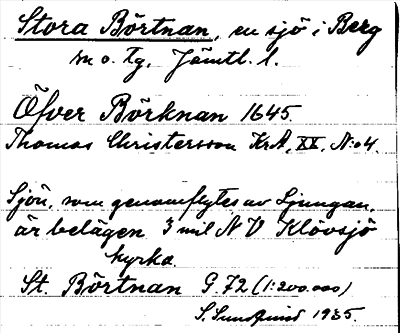 Stora Börtnan, en sjö i Berg
sn o. tg, Jämtl. l.
Öfver Börknan 1645.
Thomas Christersson KrA, XX, N:o 4.
Sjön, som genomflytes av Ljungan,
är belägen 3 mil NV Klövsjö
kyrka.
St. Börtnan G. 72 (1:200.000)
S. Sundquist 1935.